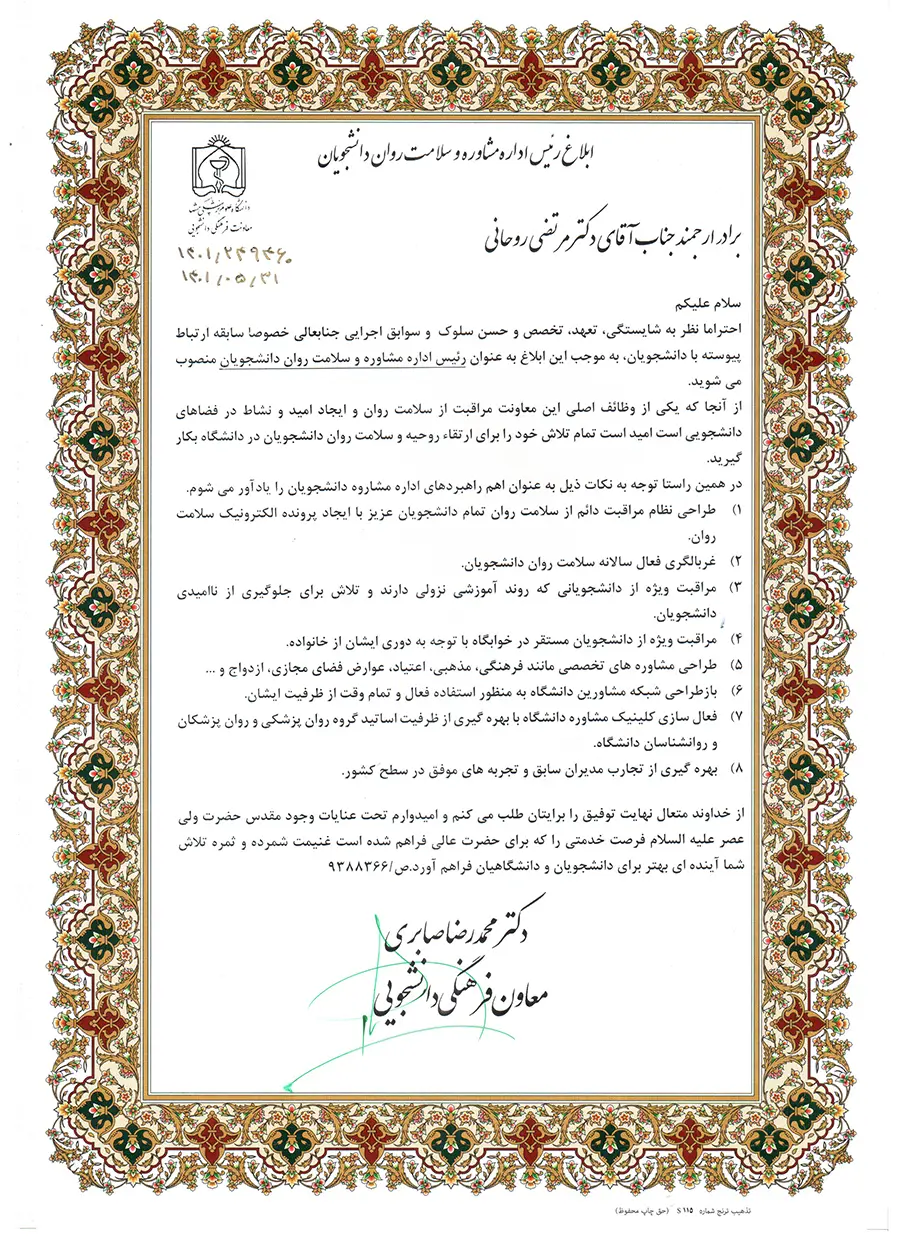 ابلاغ رئیس اداره مشاوره و سلامت روان دانشجویان
دانشگاه علوم پزشکی مشهد
معاونت فرهنگی دانشجویی
۱۴۰۱/۲۴۹۴۶۰
۱۴۰۱/۰۵/۳۱
برادر ارجمند جناب آقای دکتر مرتضی روحانی
سلام علیکم
احتراما نظر به شایستگی، تعهد، تخصص و حسن سلوک و سوابق اجرایی جنابعالی خصوصا سابقه ارتباط
پیوسته با دانشجویان، به موجب این ابلاغ به عنوان رئیس اداره مشاوره و سلامت روان دانشجویان منصوب
می شوید.
از آنجا که یکی از وظائف اصلی این معاونت مراقبت از سلامت روان و ایجاد امید و نشاط در فضاهای
دانشجویی است امید است تمام تلاش خود را برای ارتقاء روحیه و سلامت روان دانشجویان در دانشگاه بکار
گیرید.
در همین راستا توجه به نکات ذیل به عنوان اهم راهبردهای اداره مشاروه دانشجویان را یادآور می شوم.
۱) طراحی نظام مراقبت دائم از سلامت روان تمام دانشجویان عزیز با ایجاد پرونده الکترونیک سلامت
روان.
۲) غربالگری فعال سالانه سلامت روان دانشجویان.
۳) مراقبت ویژه از دانشجویانی که روند آموزشی نزولی دارند و تلاش برای جلوگیری از ناامیدی
دانشجویان.
۴) مراقبت ویژه از دانشجویان مستقر در خوابگاه با توجه به دوری ایشان از خانواده.
۵) طراحی مشاوره های تخصصی مانند فرهنگی، مذهبی، اعتیاد، عوارض فضای مجازی، ازدواج و ...
۶) بازطراحی شبکه مشاورین دانشگاه به منظور استفاده فعال و تمام وقت از ظرفیت ایشان.
۷) فعال سازی کلینیک مشاوره دانشگاه با بهره گیری از ظرفیت اساتید گروه روان پزشکی و روان پزشکان
و روانشناسان دانشگاه.
۸) بهره گیری از تجارب مدیران سابق و تجربه های موفق در سطح کشور.
از خداوند متعال نهایت توفیق را برایتان طلب می کنم و امیدوارم تحت عنایات وجود مقدس حضرت ولی
عصر علیه السلام فرصت خدمتی را که برای حضرت عالی فراهم شده است غنیمت شمرده و ثمره تلاش
شما آینده ای بهتر برای دانشجویان و دانشگاهیان فراهم آورد.ص/۹۳۸۸۳۶۶
دکتر محمدرضا صابری
معاون فرهنگی دانشجویی
تذهیب ترنج شماره S ۱۱۵ (حق چاپ محفوظ)